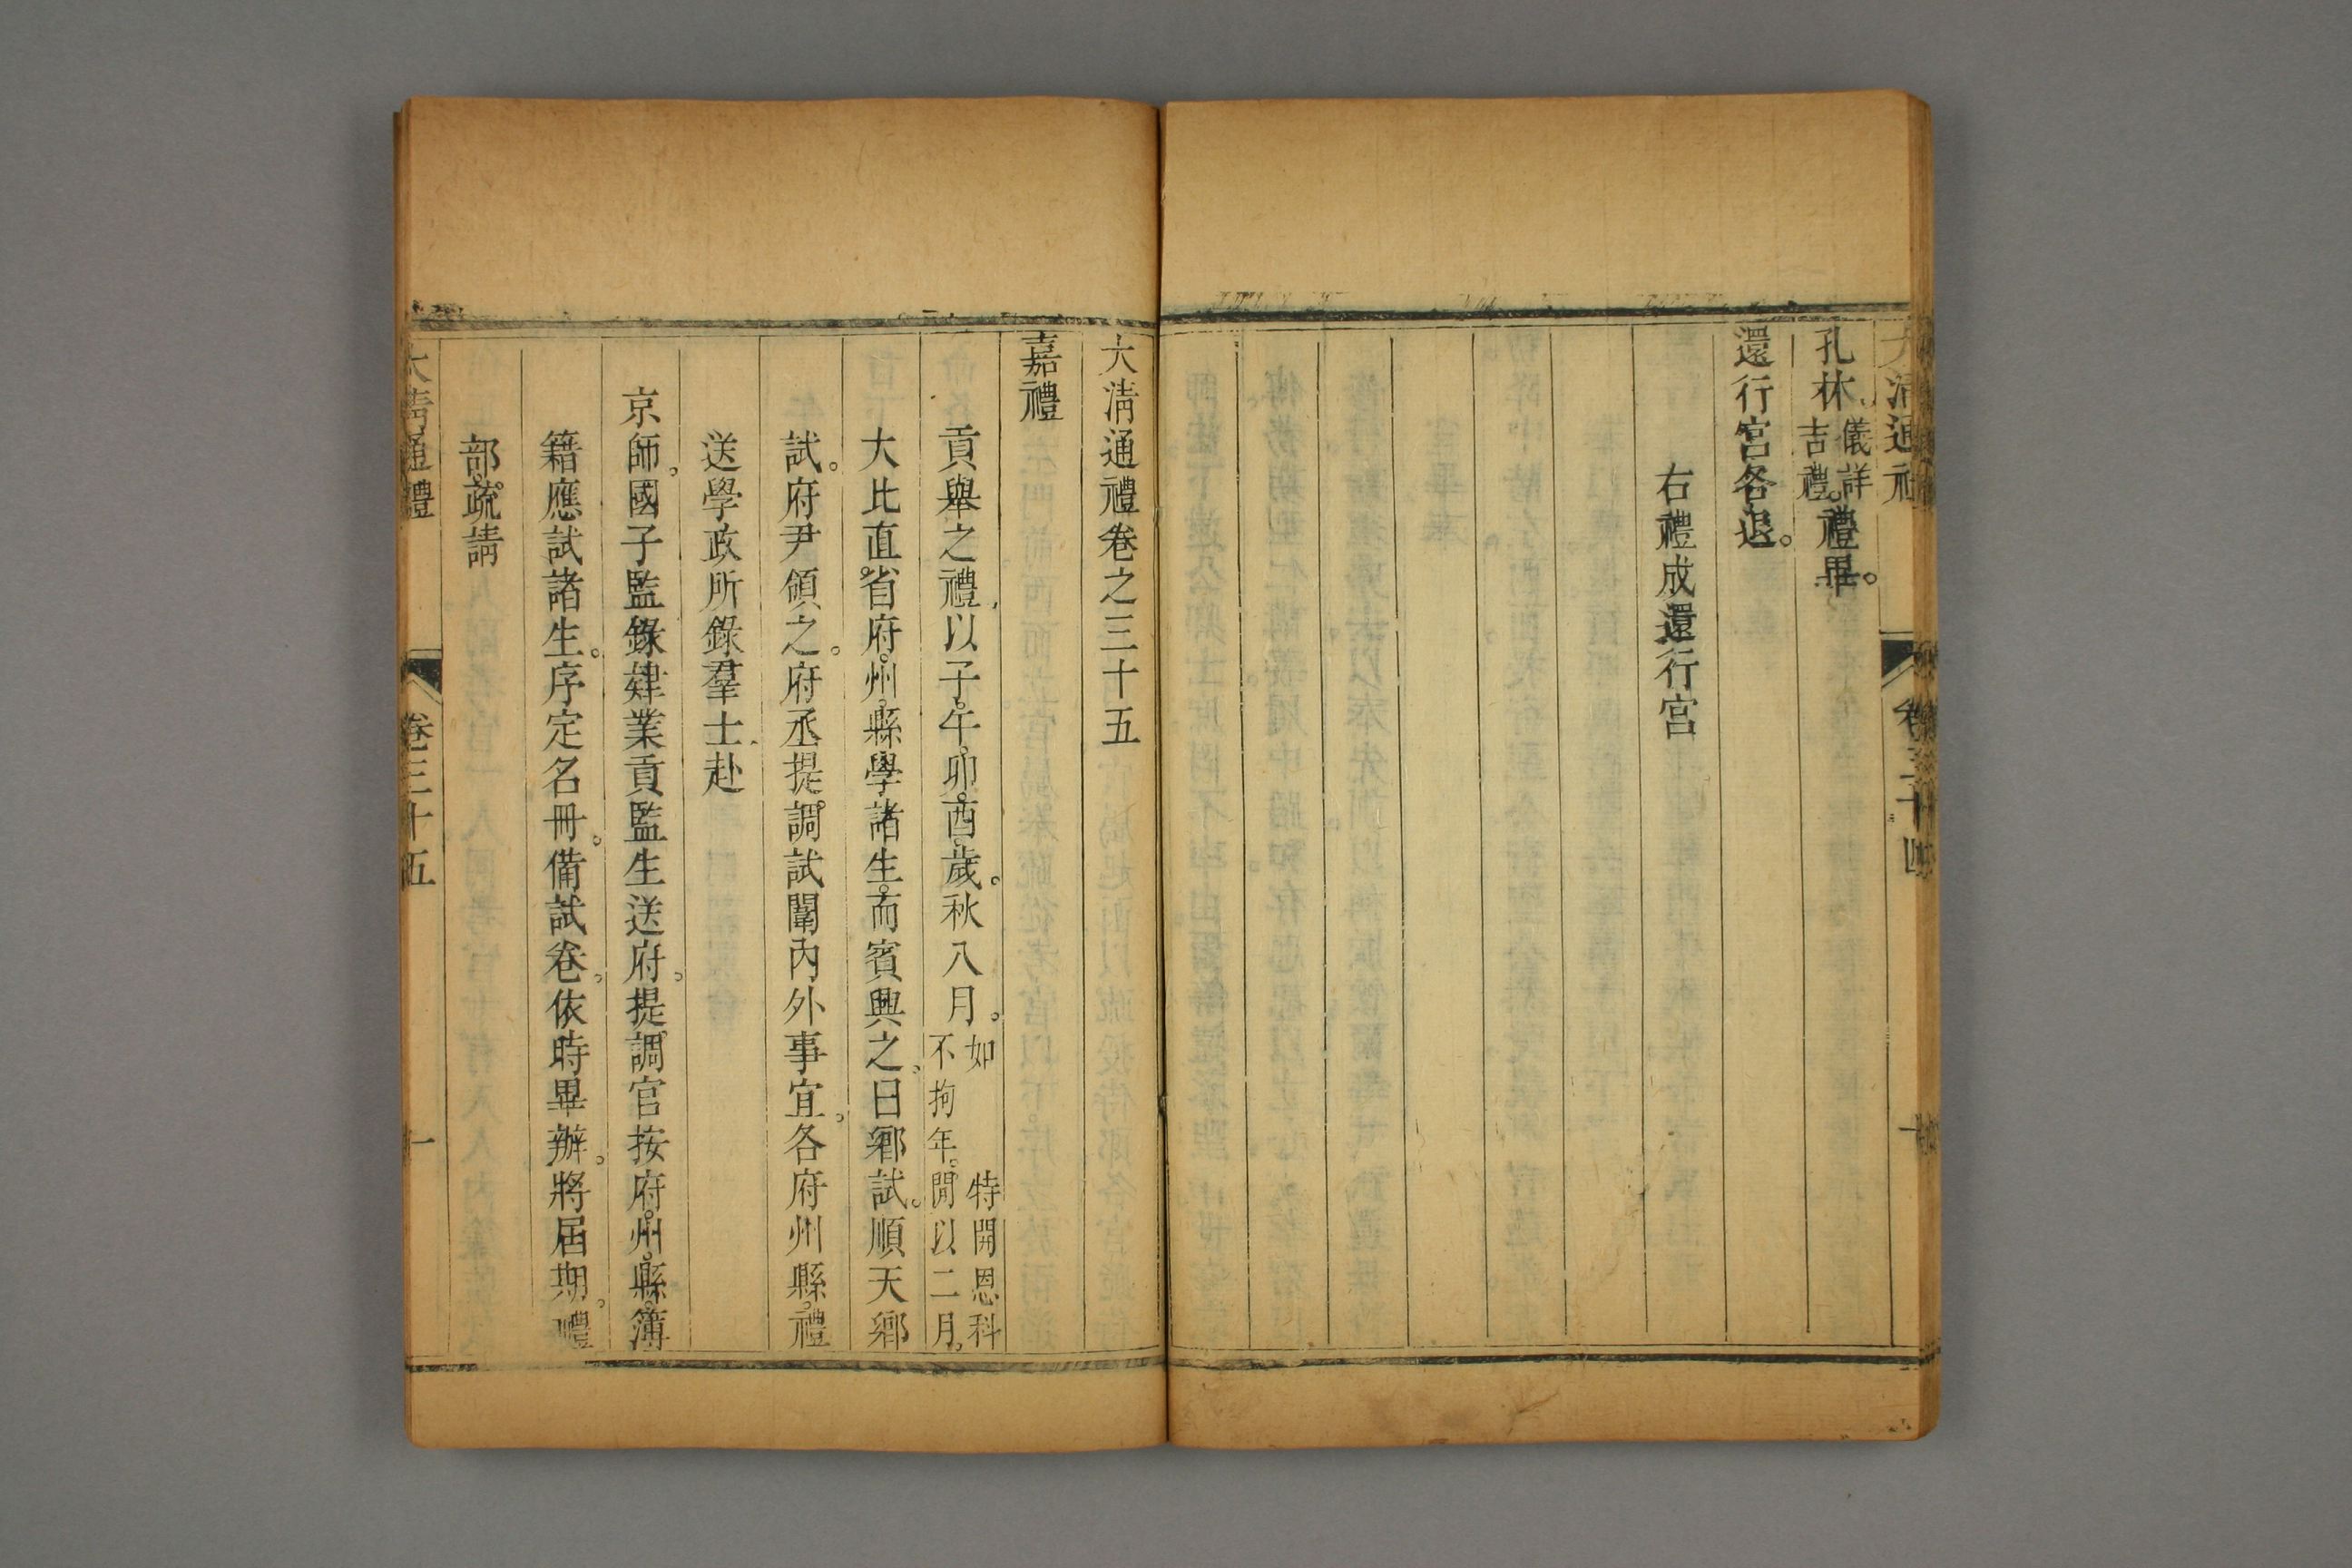 大清通禮
卷三十四
孔林儀詳吉禮。禮畢。
還行宮各退。
右禮成還行宮
大清通禮卷之三十五
嘉禮
貢舉之禮以子。午。卯。酉。歲。秋八月。如特開恩科不拘年。閒以二月。
大比直。省府。州。縣學諸生。而賓興之。曰鄉試。順天鄉
試。府尹領之。府丞提。調試闈內外事宜。各府州縣。禮
送學政所錄羣士赴
京師。國子監錄肄業貢監生送府。提。調官按府。州。縣。簿
籍應試諸生。序定名冊。備試卷。依時畢辦。將屆期。禮
部。疏請
大清通禮
卷三十五
一